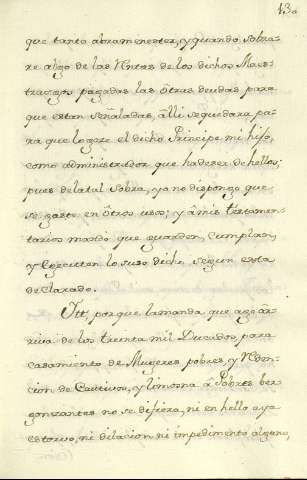 130
que tanto abra menester, y quando sobra-
re algo de las Rentas de los dichos Maes-
trazgos pagadas las otras deudas para
que estan señaladas, alli se quedara pa-
ra que lo goze el dicho Principe mi hijo,
como administrador que ha de ser de hellos;
pues de la tal sobra, yo no dispongo que
se gaste en otros usos; y â mis testamen-
tarios mando que guarden, cumplan,
y executen lo suso dicho segun esta
declarado.
Ytt, porque la manda que ago ar-
riva de los treinta mil Ducados, para
casamiento de Mugeres pobres, y Reden-
cion de Cautivos, y limosna â Pobres ber-
gonzantes no se difiera, ni en hello aya
estorvo, ni dilacion ni impedimento alguno,